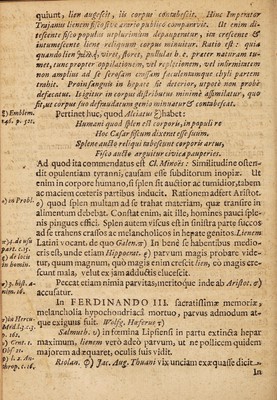 quiunt, lien augescit, iis corpus contabescit. Hinc Imperator
Trajanus lienem fisco seu ærario publico comparavit. Ut enim di-
tescente fisco populus utplurimùm depauperatur, ita crescente &
intumescente liene reliquum corpus minuitur. Ratio est: quia
quando lien viret, floret, pollulat b. e. præter naturam tu-
met, tunc propter oppilationem, vel repletionem, vel infirmitatem
non ampliùs ad se ferosam crassam fæculentamque chyli partem
trahit. Proin sanguis in hepate sit deterior, utpote non probè
defæcatus. Legitur in corpus distributus minimè assimilatur, quo
fit, ut corpus suo defraudatum genio minuatur & contabescat.
ξ) Emblem.
146. p. 522.
Pertinet huc, quod Alciatus ξ) habet:
Humani quod splen est corporis, in populi re
Hoc Cæsar fiscum dixent esse suum.
Splene aucto reliqui tabescunt corporis artus,
Fisco aucto arguitur civica pauperies.
Ad quod ita commendatus est Cl. Minois: Similitudine osten-
dit opulentiam tyranni, causam esse subditorum inopiæ. Ut
enim in corpore humano, si splen sit auctior ac tumidior, tabem
ac maciem cœteris partibus inducit. Rationem adfert Aristot.
o) in Probl.
o) quod splen multam ad se trahat materiam, quæ transire in
alimentum debebat. Constat enim, ait ille, homines pauci sple-
nis pingues effici. Splen autem viscus est in sinistra parte succos
ad se trahens crassos ac melancholicos in hepate genitos. Lienem
Latini vocant de quo Galen. π) In benè se habentibus medio-
cris est, unde etiam Hippocrat. ρ) parvum magis probare vide-
tur, quum magnum, quò magis enim crescit lien, eò magis cre-
scunt mala, velut ex jam adductis elucescit.
π) 4. de usu
part. c. 15.
ρ) de locis
in homin.
ς) p. hist. a-
nim. 16.
Peccat etiam nimia parvitas, meritoque inde ab Aristot. ς)
accusatur.
In FERDINANDO III. sacratissimæ memoriæ,
melancholia hypochondriacâ mortuo, parvus admodum at-
que exiguus fuit. Wolfg. Hœferus τ)
Salmuth. υ) in fœmina Lipsensi in partu extincta hepar
maximum, lienem verò adeò parvum, ut ne pollicem quidem
majorem adæquaret, oculis suis vidit.
Riolan. φ) Jac. Aug. Thuani vix unciam exæquasse dicit.
In